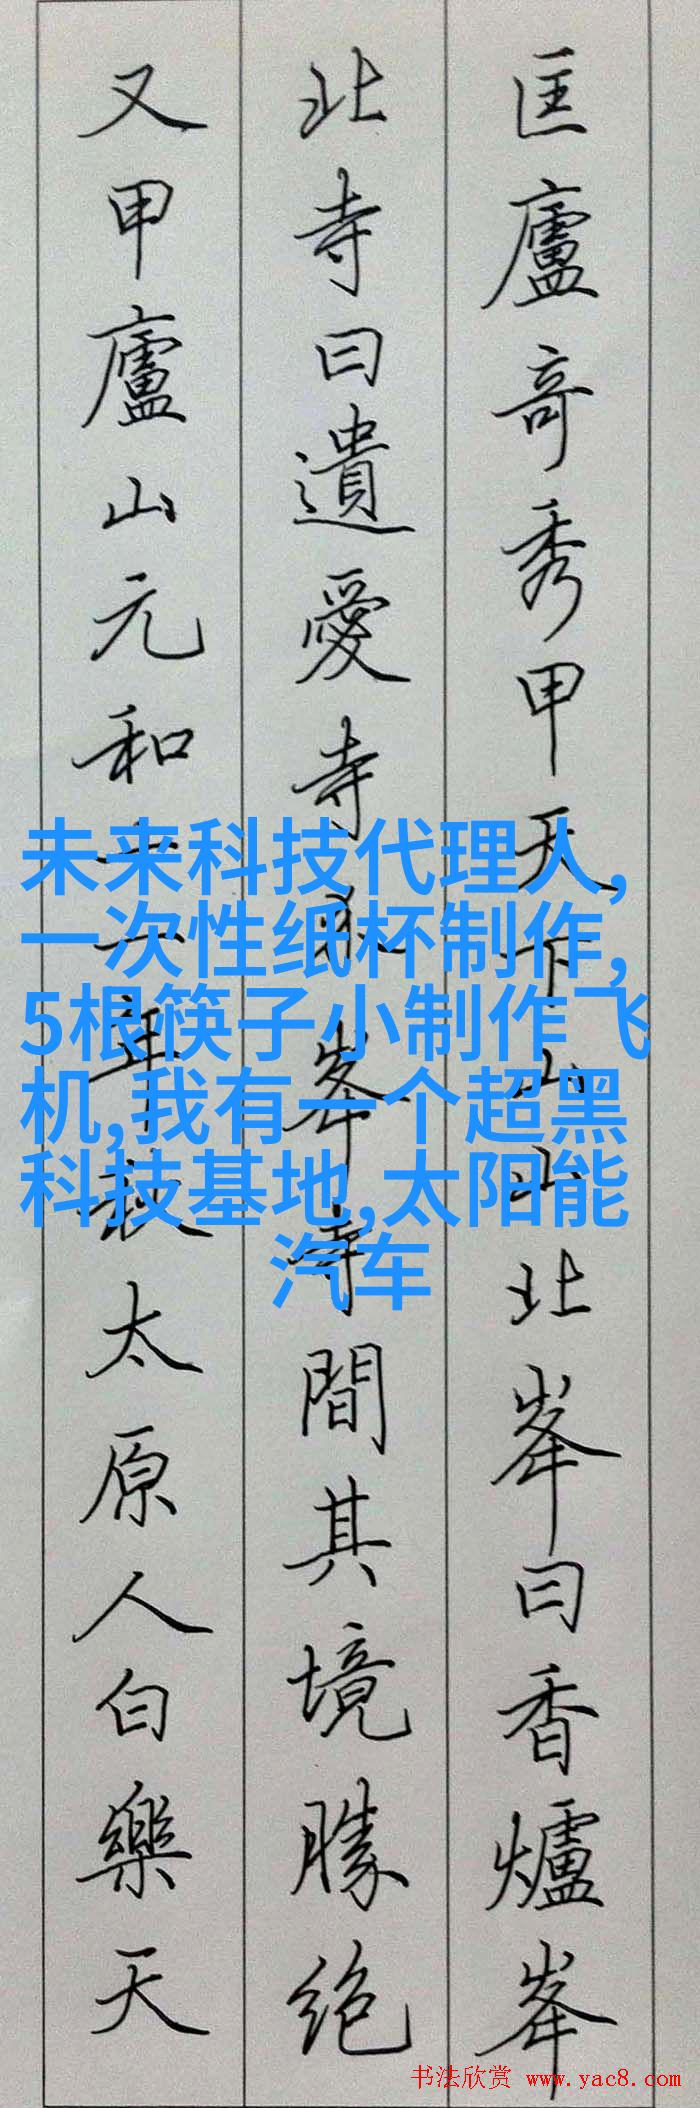 匡廬奇秀甲天下山山北峯曰香爐峯
北寺曰遺愛寺介峯寺間其境勝絶
又甲廬山元和十一年秋太原人白樂天
未来科技代理人,
一次性纸杯制作,
5根筷子小制作飞
机,我有一个超黑
科技基地,太阳能
汽车
书法欣赏 www.yac8.com